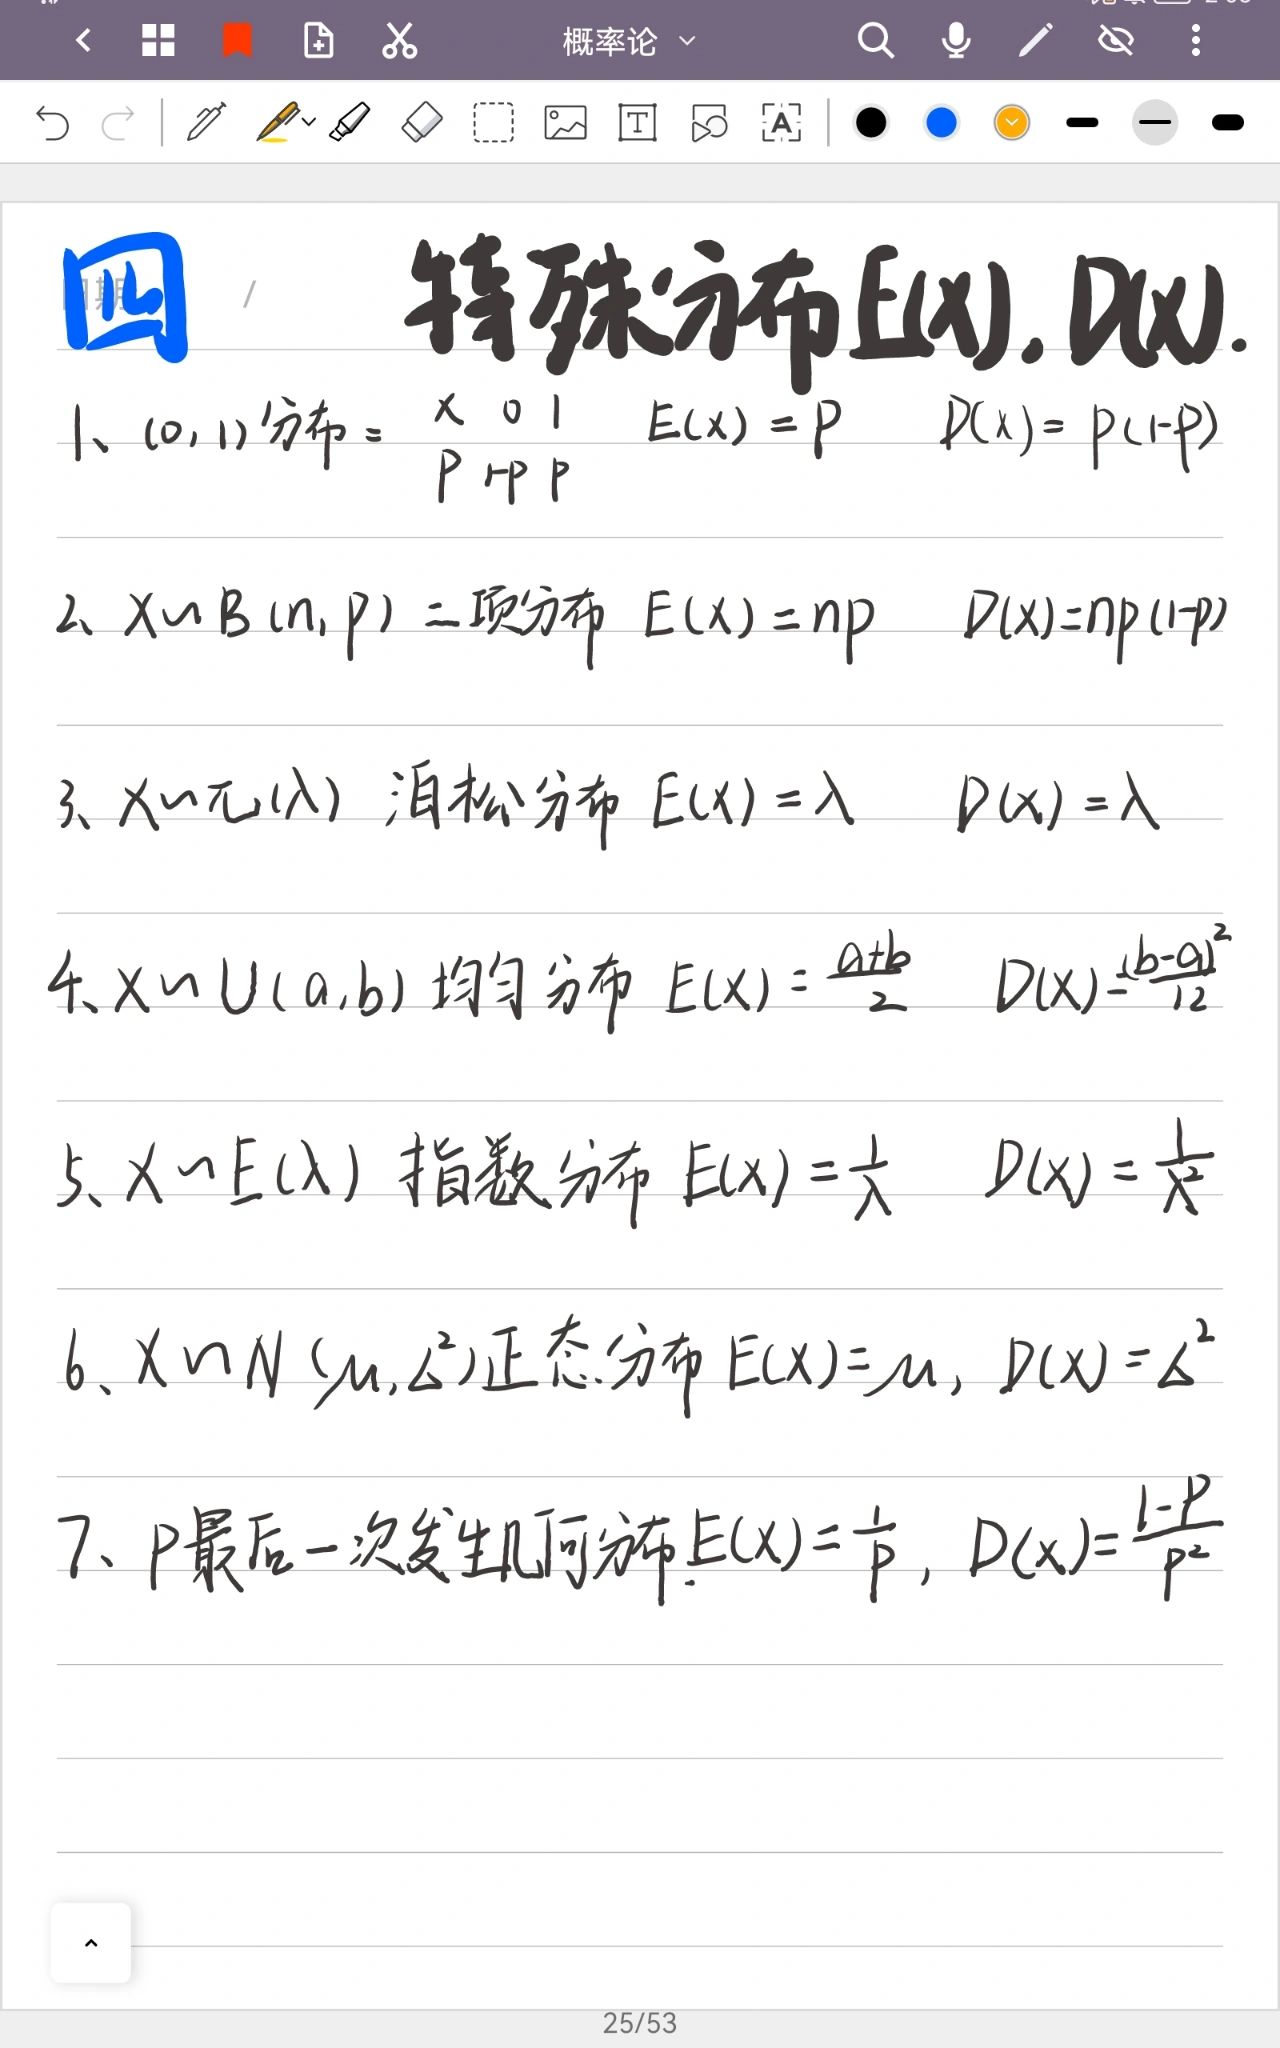 概率论
T
A
四 日期 /
特殊分布E(X).D(X).
1、(0,1)分布= X 0 1 E(X)=P D(X)=P(1-P)
P 1-P P
2、X~B(n,p)二项分布 E(X)=np D(X)=np(1-p)
3、X~π(λ) 泊松分布 E(X)=λ D(X)=λ
4、X~U(a,b)均匀分布 E(X)=a+b/2 D(X)=(b-a)²/12
5、X~E(λ)指数分布 E(X)=1/λ D(X)=1/λ²
6、X~N(μ,σ²)正态分布 E(X)=μ, D(X)=σ²
7、P最后一次发生几何分布.E(X)=1/P, D(X)=1-P/P²
25/53